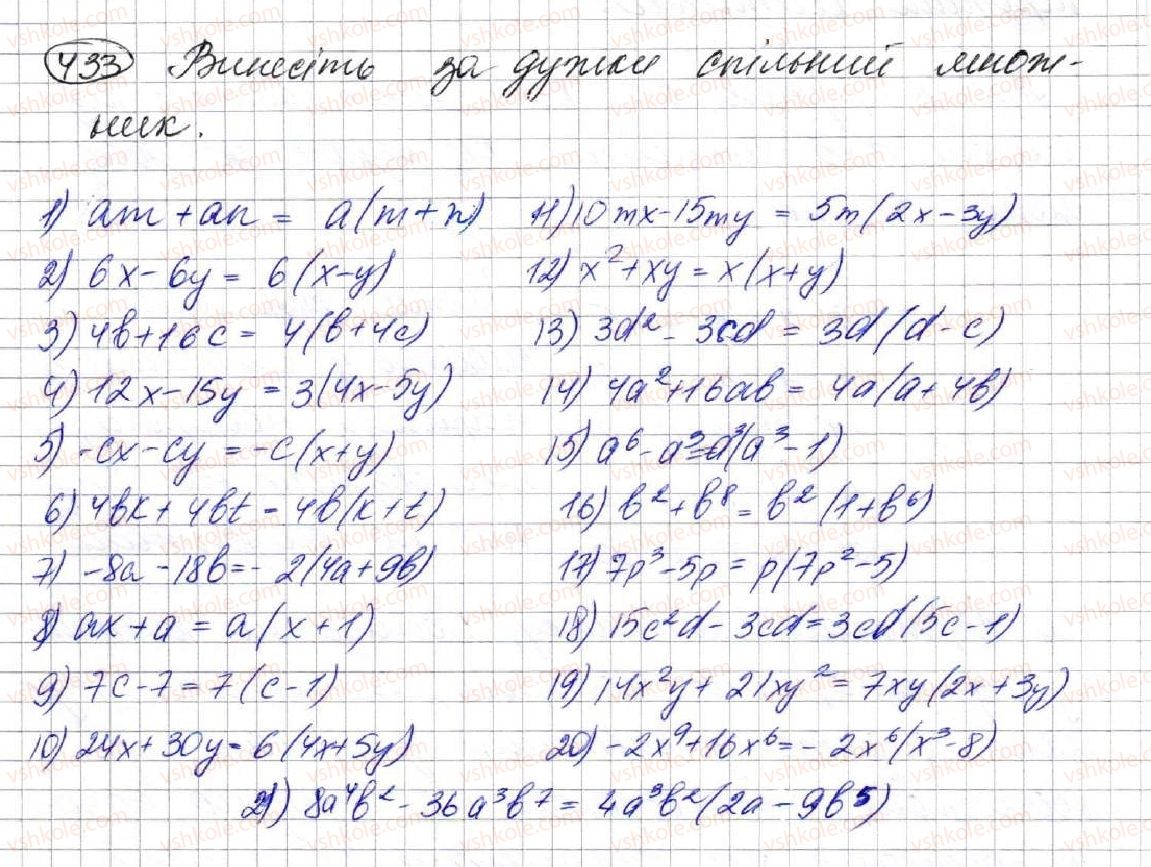 433 Винесіть за дужки спільний множ-
ник.
1) am + an = a(m + n)
2) 6x - 6y = 6(x - y)
3) 4b + 16c = 4(b + 4c)
4) 12x - 15y = 3(4x - 5y)
5) -cx - cy = -c(x + y)
6) 4bk + 4bt = 4b(k + t)
7) -8a - 18b = -2(4a + 9b)
8) ax + a = a(x + 1)
9) 7c - 7 = 7(c - 1)
10) 24x + 30y = 6(4x + 5y)
11) 10mx - 15my = 5m(2x - 3y)
12) x² + xy = x(x + y)
13) 3d² - 3cd = 3d(d - c)
14) 4a² + 16ab = 4a(a + 4b)
15) a⁶ - a³ = a³(a³ - 1)
16) b² + b⁸ = b²(1 + b⁶)
17) 7p³ - 5p = p(7p² - 5)
18) 15c²d - 3cd = 3cd(5c - 1)
19) 14x²y + 21xy² = 7xy(2x + 3y)
20) -2x⁹ + 16x⁶ = -2x⁶(x³ - 8)
21) 8a⁴b² - 36a³b⁷ = 4a³b²(2a - 9b⁵)